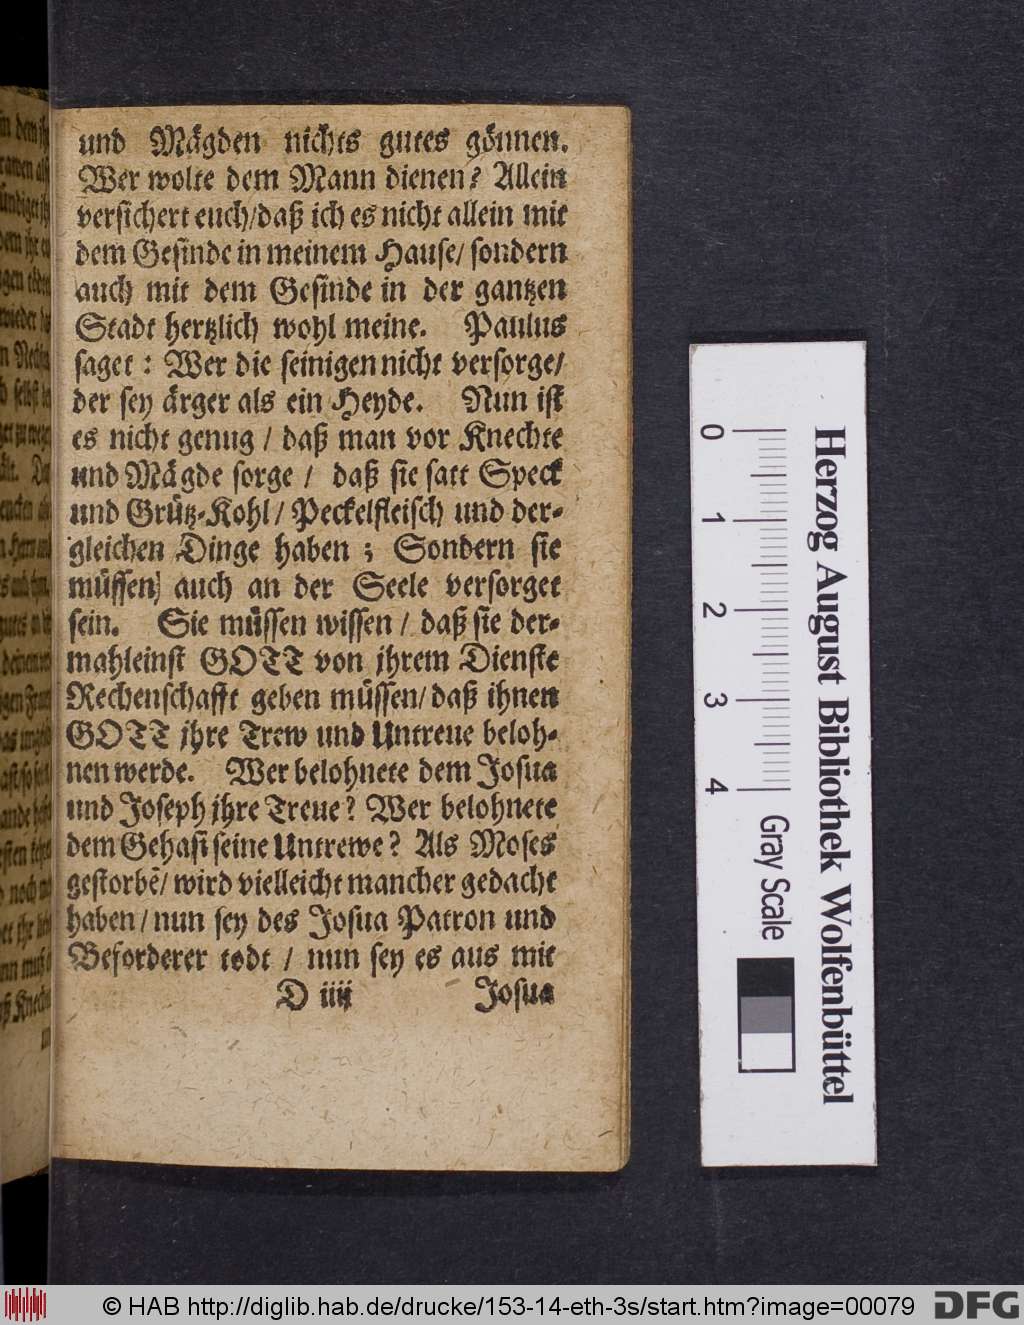 und Mägden nichts gutes gönnen.
Wer wolte dem Mann dienen? Allein
versichert euch/daß ich es nicht allein mit
dem Gesinde in meinem Hause/ sondern
auch mit dem Gesinde in der gantzen
Stadt hertzlich wohl meine. Paulus
saget : Wer die seinigen nicht versorge/
der sey ärger als ein Heyde. Nun ist
es nicht genug / daß man vor Knechte
und Mägde sorge / daß sie satt Speck
und Grütz-Kohl/ Peckelfleisch und der-
gleichen Dinge haben ; Sondern sie
müssen auch an der Seele versorget
sein. Sie müssen wissen / daß sie der-
mahleinst GOTT von ihrem Dienste
Rechenschafft geben müssen/ daß ihnen
GOTT ihre Trew und Untreue beloh-
nen werde. Wer belohnete dem Josua
und Joseph ihre Treue? Wer belohnete
dem Gehasi seine Untrewe? Als Moses
gestorbē/ wird vielleicht mancher gedacht
haben/ nun sey des Josua Patron und
Beforderer todt / nun sey es aus mit
D iiij Josua
0 1 2 3 4
Gray Scale
Herzog August Bibliothek Wolfenbüttel
© HAB http://diglib.hab.de/drucke/153-14-eth-3s/start.htm?image=00079
DFG